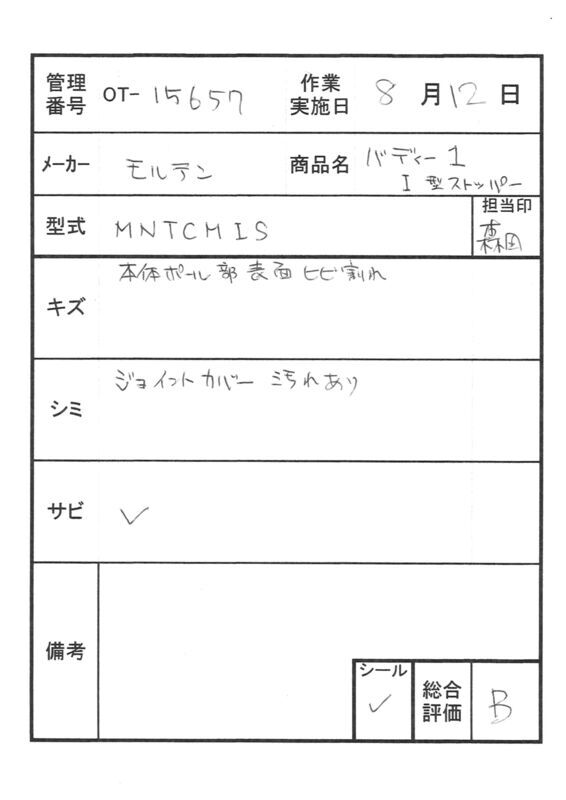 管理番号 OT-15657 作業実施日 8月12日
メーカー モルテン 商品名 バディー1
I型ストッパー
型式 MNTCMIS 担当印
森田
キズ 本体ポール部表面ヒビ割れ
シミ ジョイントカバー 汚れあり
サビ ✓
備考
シール ✓ 総合評価 B